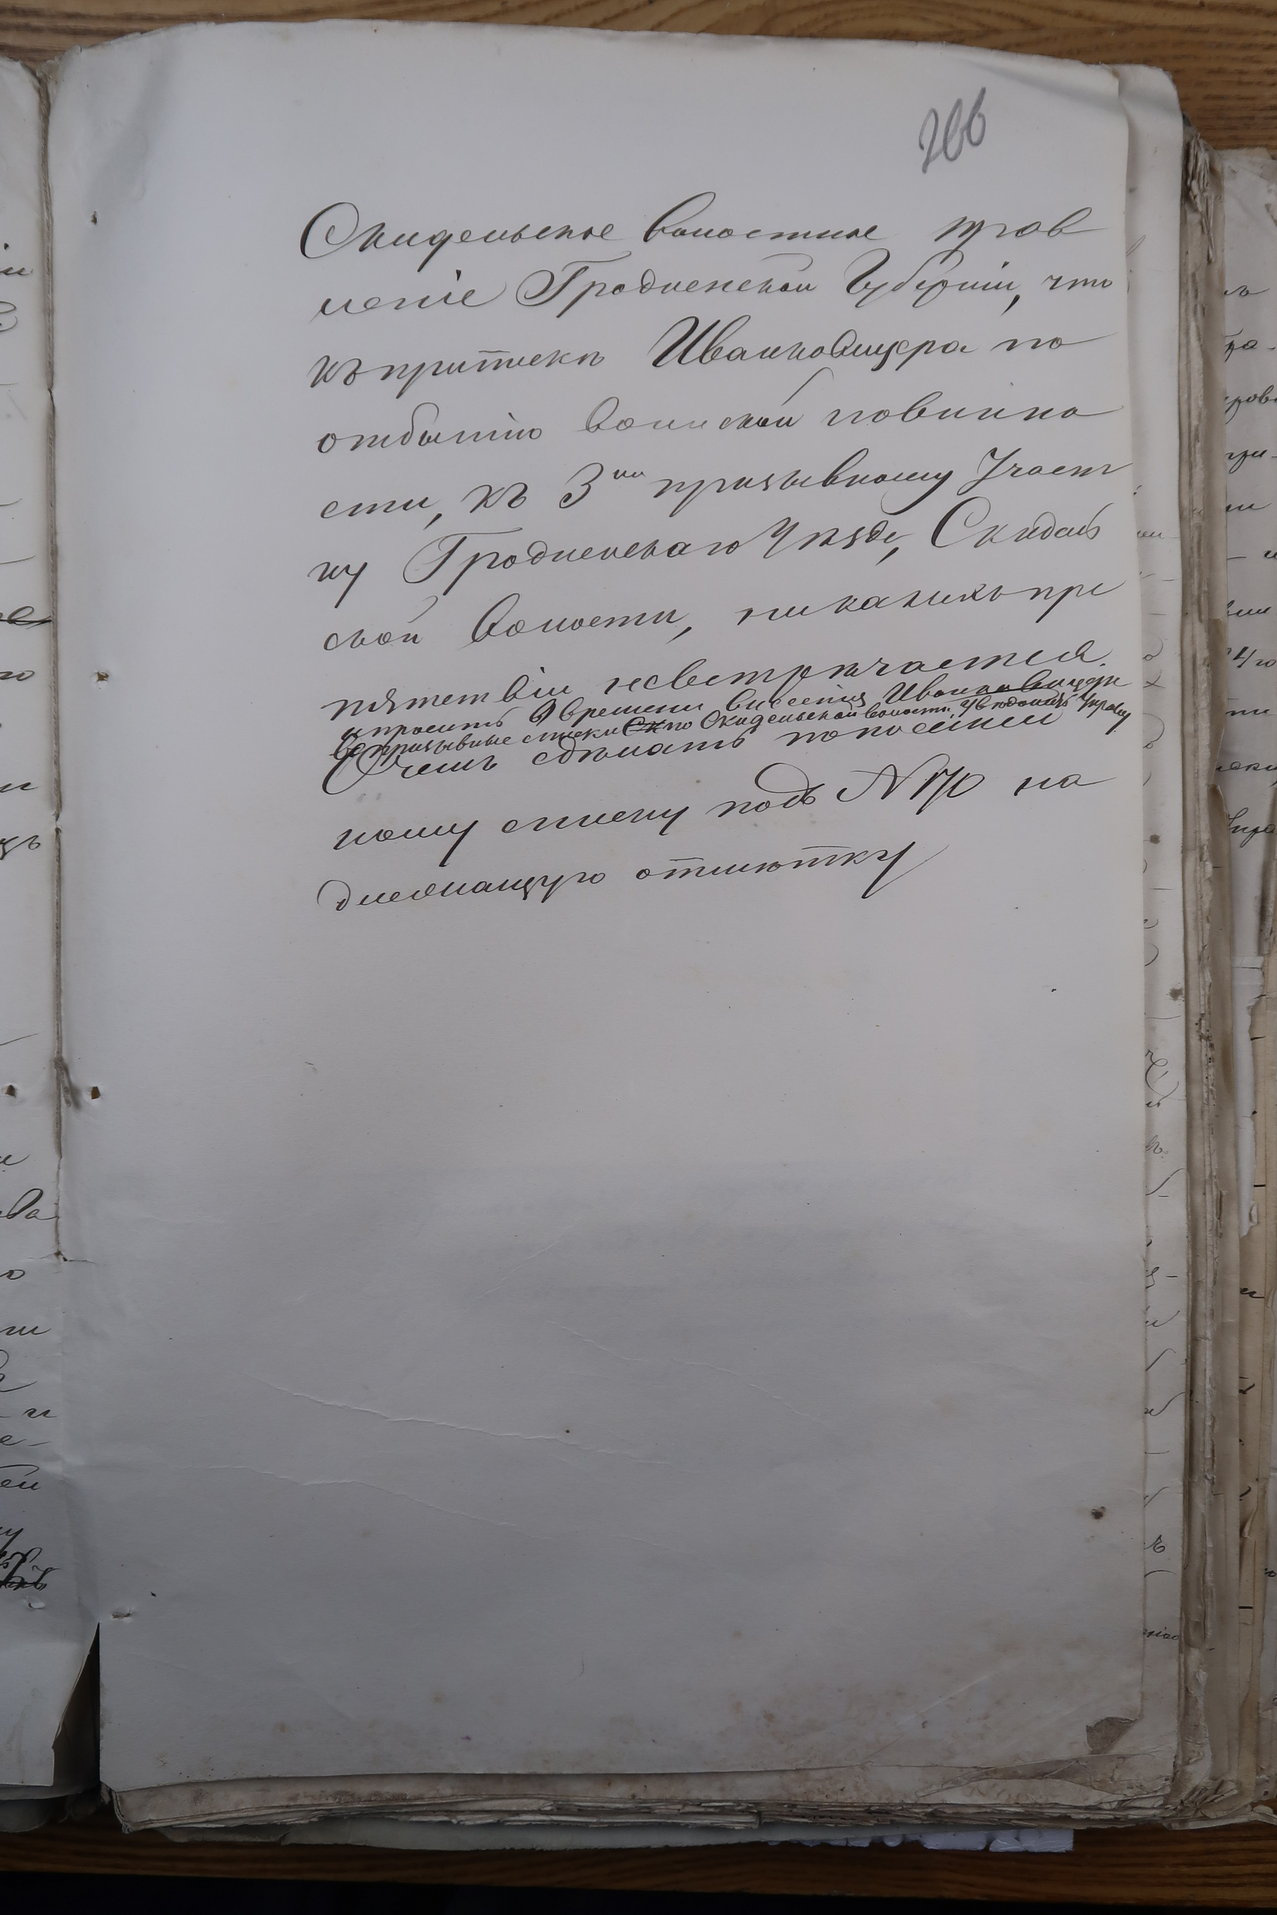 266
Скидельское волостное прав
ленiе Гродненской Губернiи, что
къ припискѣ Иванковицера по
отбытiю воинской повинно
сти, къ 3му призывному Участ
ку Гродненскаго Уѣзда, Скидель
ской Волости, никакихъ пре
пятствiи невстрѣчается.
и проситъ о времени внесенiя Иванковицера
въ призывные списки Ск по Скидельской волости увѣдомить Управу
О чемъ сдѣлать по посемей
ному списку подъ N 170 на
длежащую отмѣтку